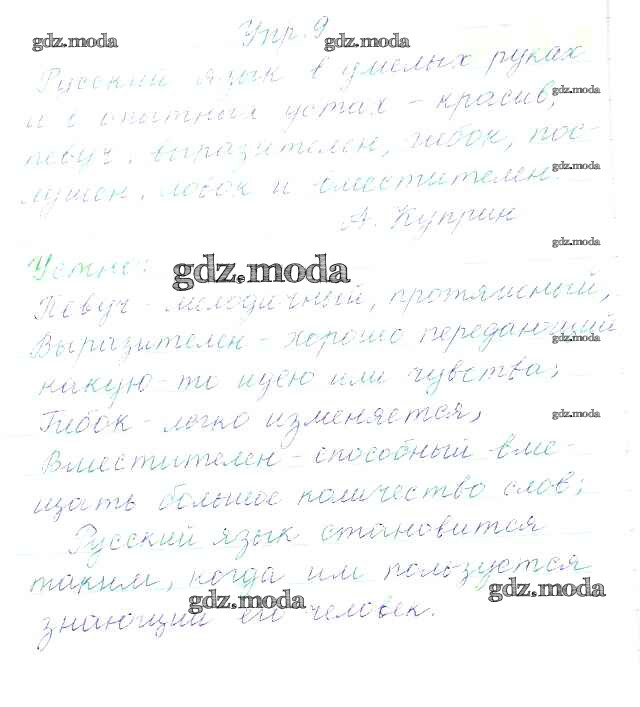 Упр. 9
gdz.moda gdz.moda
Русский язык в умелых руках
и в опытных устах - красив, gdz.moda
певуч, выразителен, гибок, пос-
лушен, ловок и вместителен. gdz.moda
А. Куприн
gdz.moda
Устно: gdz.moda
Певуч - мелодичный, протяжный,
Выразителен - хорошо передающий
gdz.moda
какую-то идею или чувства;
Гибок - легко изменяется, gdz.moda
Вместителен - способный вме-
щать большое количество слов;
Русский язык становится
таким, когда им пользуется
gdz.moda gdz.moda
знающий его человек.